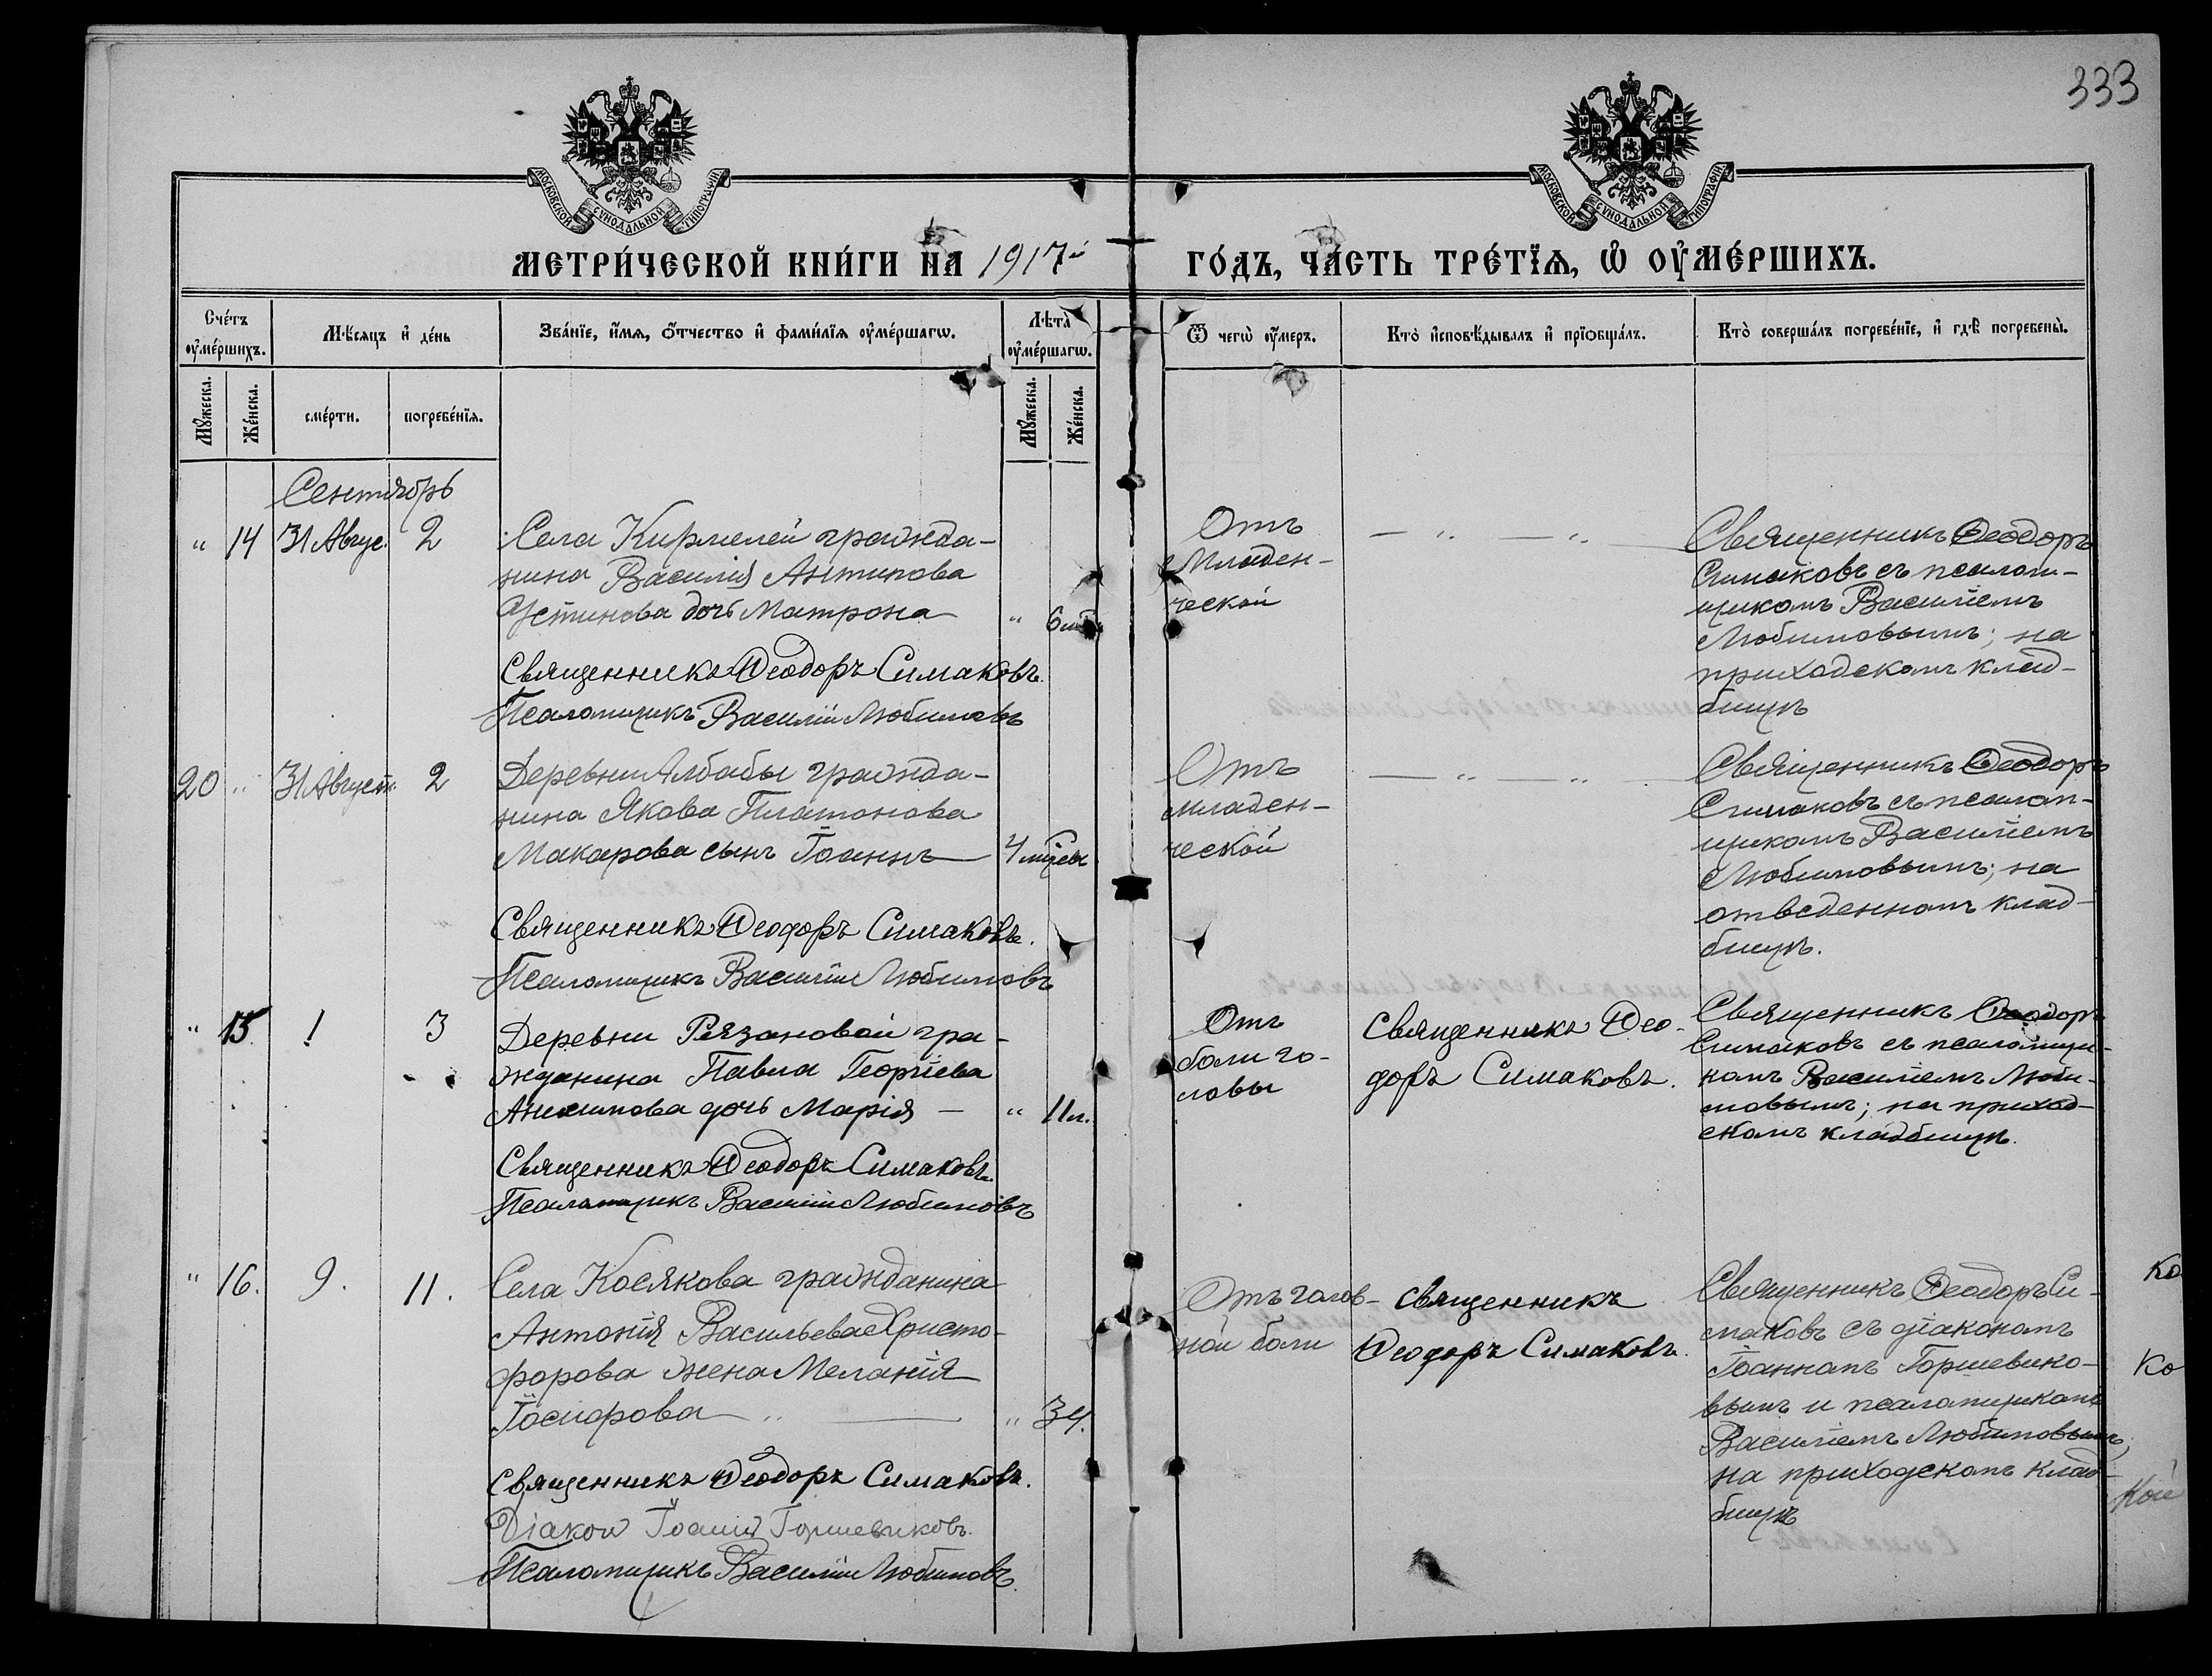 333
МОСКОВСКОЙ СѴНОДАЛЬНОЙ ТИПОГРАФІИ
МОСКОВСКОЙ СѴНОДАЛЬНОЙ ТИПОГРАФІИ
МЕТРИ́ЧЕСКОЙ КНИ́ГИ НА 1917й ГО́ДЪ, ЧА́СТЬ ТРЕ́ТЇѦ, Ѡ҆ ОУ҆МЕ́РШИХЪ.
Сче́тъ оу҆ме́ршихъ.
Мѣ́сяцъ и҆ де́нь
Зва́нїе, и҆́мѧ, ѻ҆́тчество и҆ фами́лїѧ оу҆ме́ршагѡ.
Лѣта̀ оу҆ме́ршагѡ.
Ѿ чегѡ̀ оу҆́меръ.
Кто̀ и҆сповѣ́дывалъ и҆ прїѡбща́лъ.
Кто̀ соверша́лъ погребе́нїе, и҆ гдѣ̀ погребены̀.
Мꙋ́жеска.
Же́нска.
сме́рти.
погребе́нїѧ.
Мꙋ́жеска.
Же́нска.
Сентябрь
" 14 31 Авгус. 2
Села Кирмелей гражда-
нина Василія Антипова
Устинова дочь Матрона " 6
Священникъ Ѳеодоръ Симаковъ.
Псаломщикъ Василій Любимовъ
Отъ
Младен-
ческой
— " — "
Священникъ Ѳеодоръ
Симаковъ съ псалом-
щикомъ Василіемъ
Любимовымъ; на
приходскомъ клад-
бищѣ
20 " 31 Август. 2
Деревни Албабы гражда-
нина Якова Платонова
Макарова сынъ Іоаннъ — 4 мѣсяц
Священникъ Ѳеодоръ Симаковъ.
Псаломщикъ Василій Любимовъ
Отъ
младен-
ческой
— " — "
Священникъ Ѳеодоръ
Симаковъ съ псалом-
щикомъ Василіемъ
Любимовымъ; на
отведенномъ клад-
бищѣ.
" 15 1 3
Деревни Рязановой гра-
жданина Павла Георгіева
Анисимова дочь Марія — " 11 л.
Священникъ Ѳеодоръ Симаковъ.
Псаломщикъ Василій Любимовъ
Отъ
боли го-
ловы
Священникъ Ѳео-
доръ Симаковъ.
Священникъ Ѳеодоръ
Симаковъ съ псаломщи-
комъ Василіемъ Люби-
мовымъ; на приход-
скомъ кладбищѣ.
" 16. 9. 11.
Села Косякова гражданина
Антонія Васильева Христо-
форова жена Меланія
Іосифова — " — " 34.
Священникъ Ѳеодоръ Симаковъ.
Діакон Іоаннъ Горшевиковъ.
Псаломщикъ Василій Любимовъ.
Отъ голов-
ной боли
Священникъ
Ѳеодоръ Симаковъ.
Священникъ Ѳеодоръ Си-
маковъ съ діакономъ
Іоанномъ Горшевико-
вымъ и псаломщикомъ
Василіемъ Любимовымъ;
на приходскомъ клад-
бищѣ
ко
ко